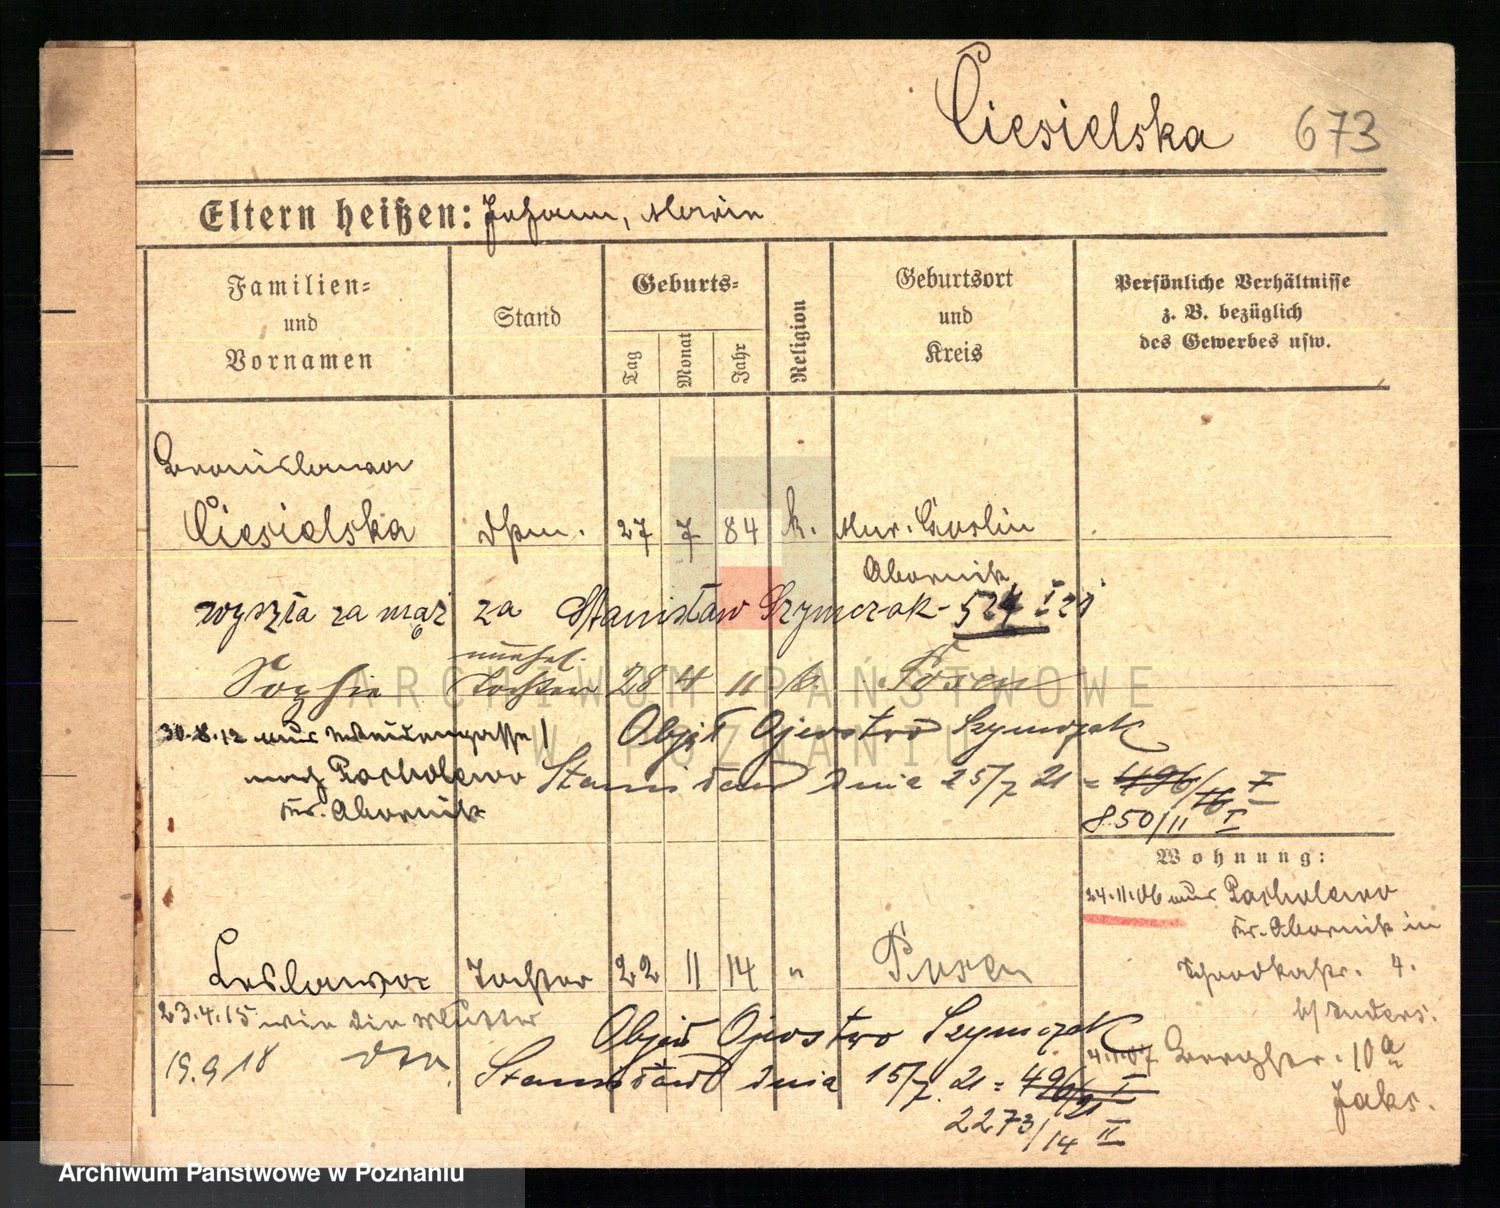 Ciesielska 673
Eltern heißen: Johann, Marie
Familien= und Vornamen
Stand
Geburts=
Tag
Monat
Jahr
Religion
Geburtsort und Kreis
Persönliche Verhältnisse
z. B. bezüglich
des Gewerbes usw.
Bronislawa
Ciesielska Dstm. 27 7 84 k. Mur. Goslin
Obornik
wyszła za mąż za Stanisław Szymczak - 524 I 21
unehel.
Sophie Tochter 28 4 11 k. Posen
30.8.12 aus
nach Pacholewo
Kr. Obornik
Objął Ojcostwo Szymczak
Stanisław dnia 25/7 21 = 496/16 I
850/11 I
Wohnung:
24.11.06 aus Pacholewo
Kr. Obornik in
4.
b/ Anders.
Leslawa Tochter 22 11 14 " Posen
23.4.15 wie die Mutter
19.9.18
Objął Ojcostwo Szymczak
Stanisław dnia 15/7. 21 = 496/21 I
2273/14 II
4.1.07 10a
Jaks.
ARCHIWUM PAŃSTWOWE
W POZNANIU
Archiwum Państwowe w Poznaniu